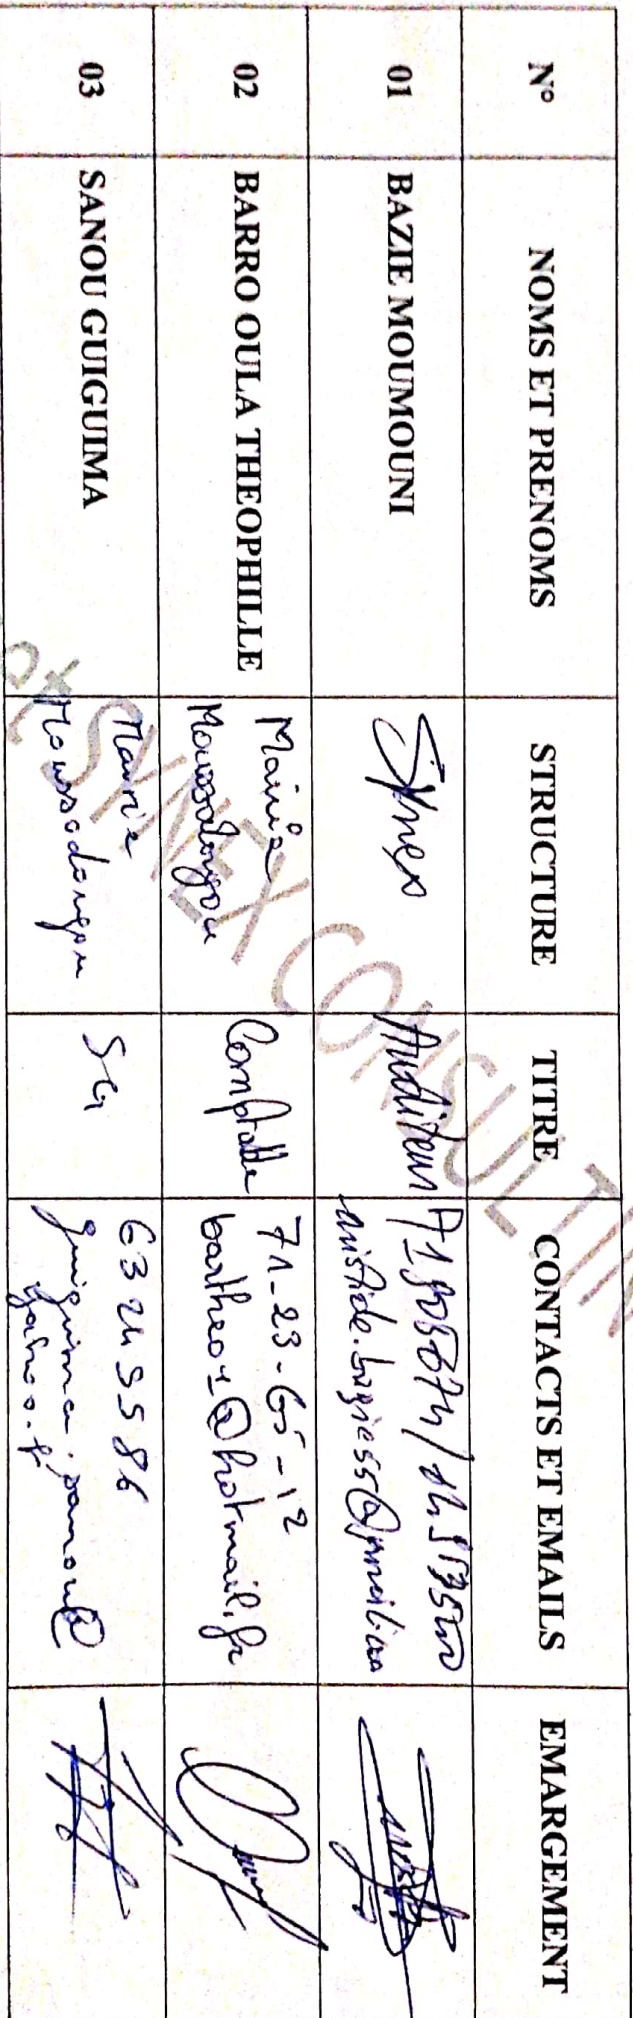 N° NOMS ET PRENOMS STRUCTURE TITRE CONTACTS ET EMAILS EMARGEMENT
01 BAZIE MOUMOUNI Synex Auditeur
02 BARRO OULA THEOPHILLE Mairie Moussodougou Comptable 71-23-65-12
bartheo1@hotmail.fr
03 SANOU GUIGUIMA Mairie Moussodougou SG
guiguima.sanou@
yahoo.fr
SYNEX CONSULTIN